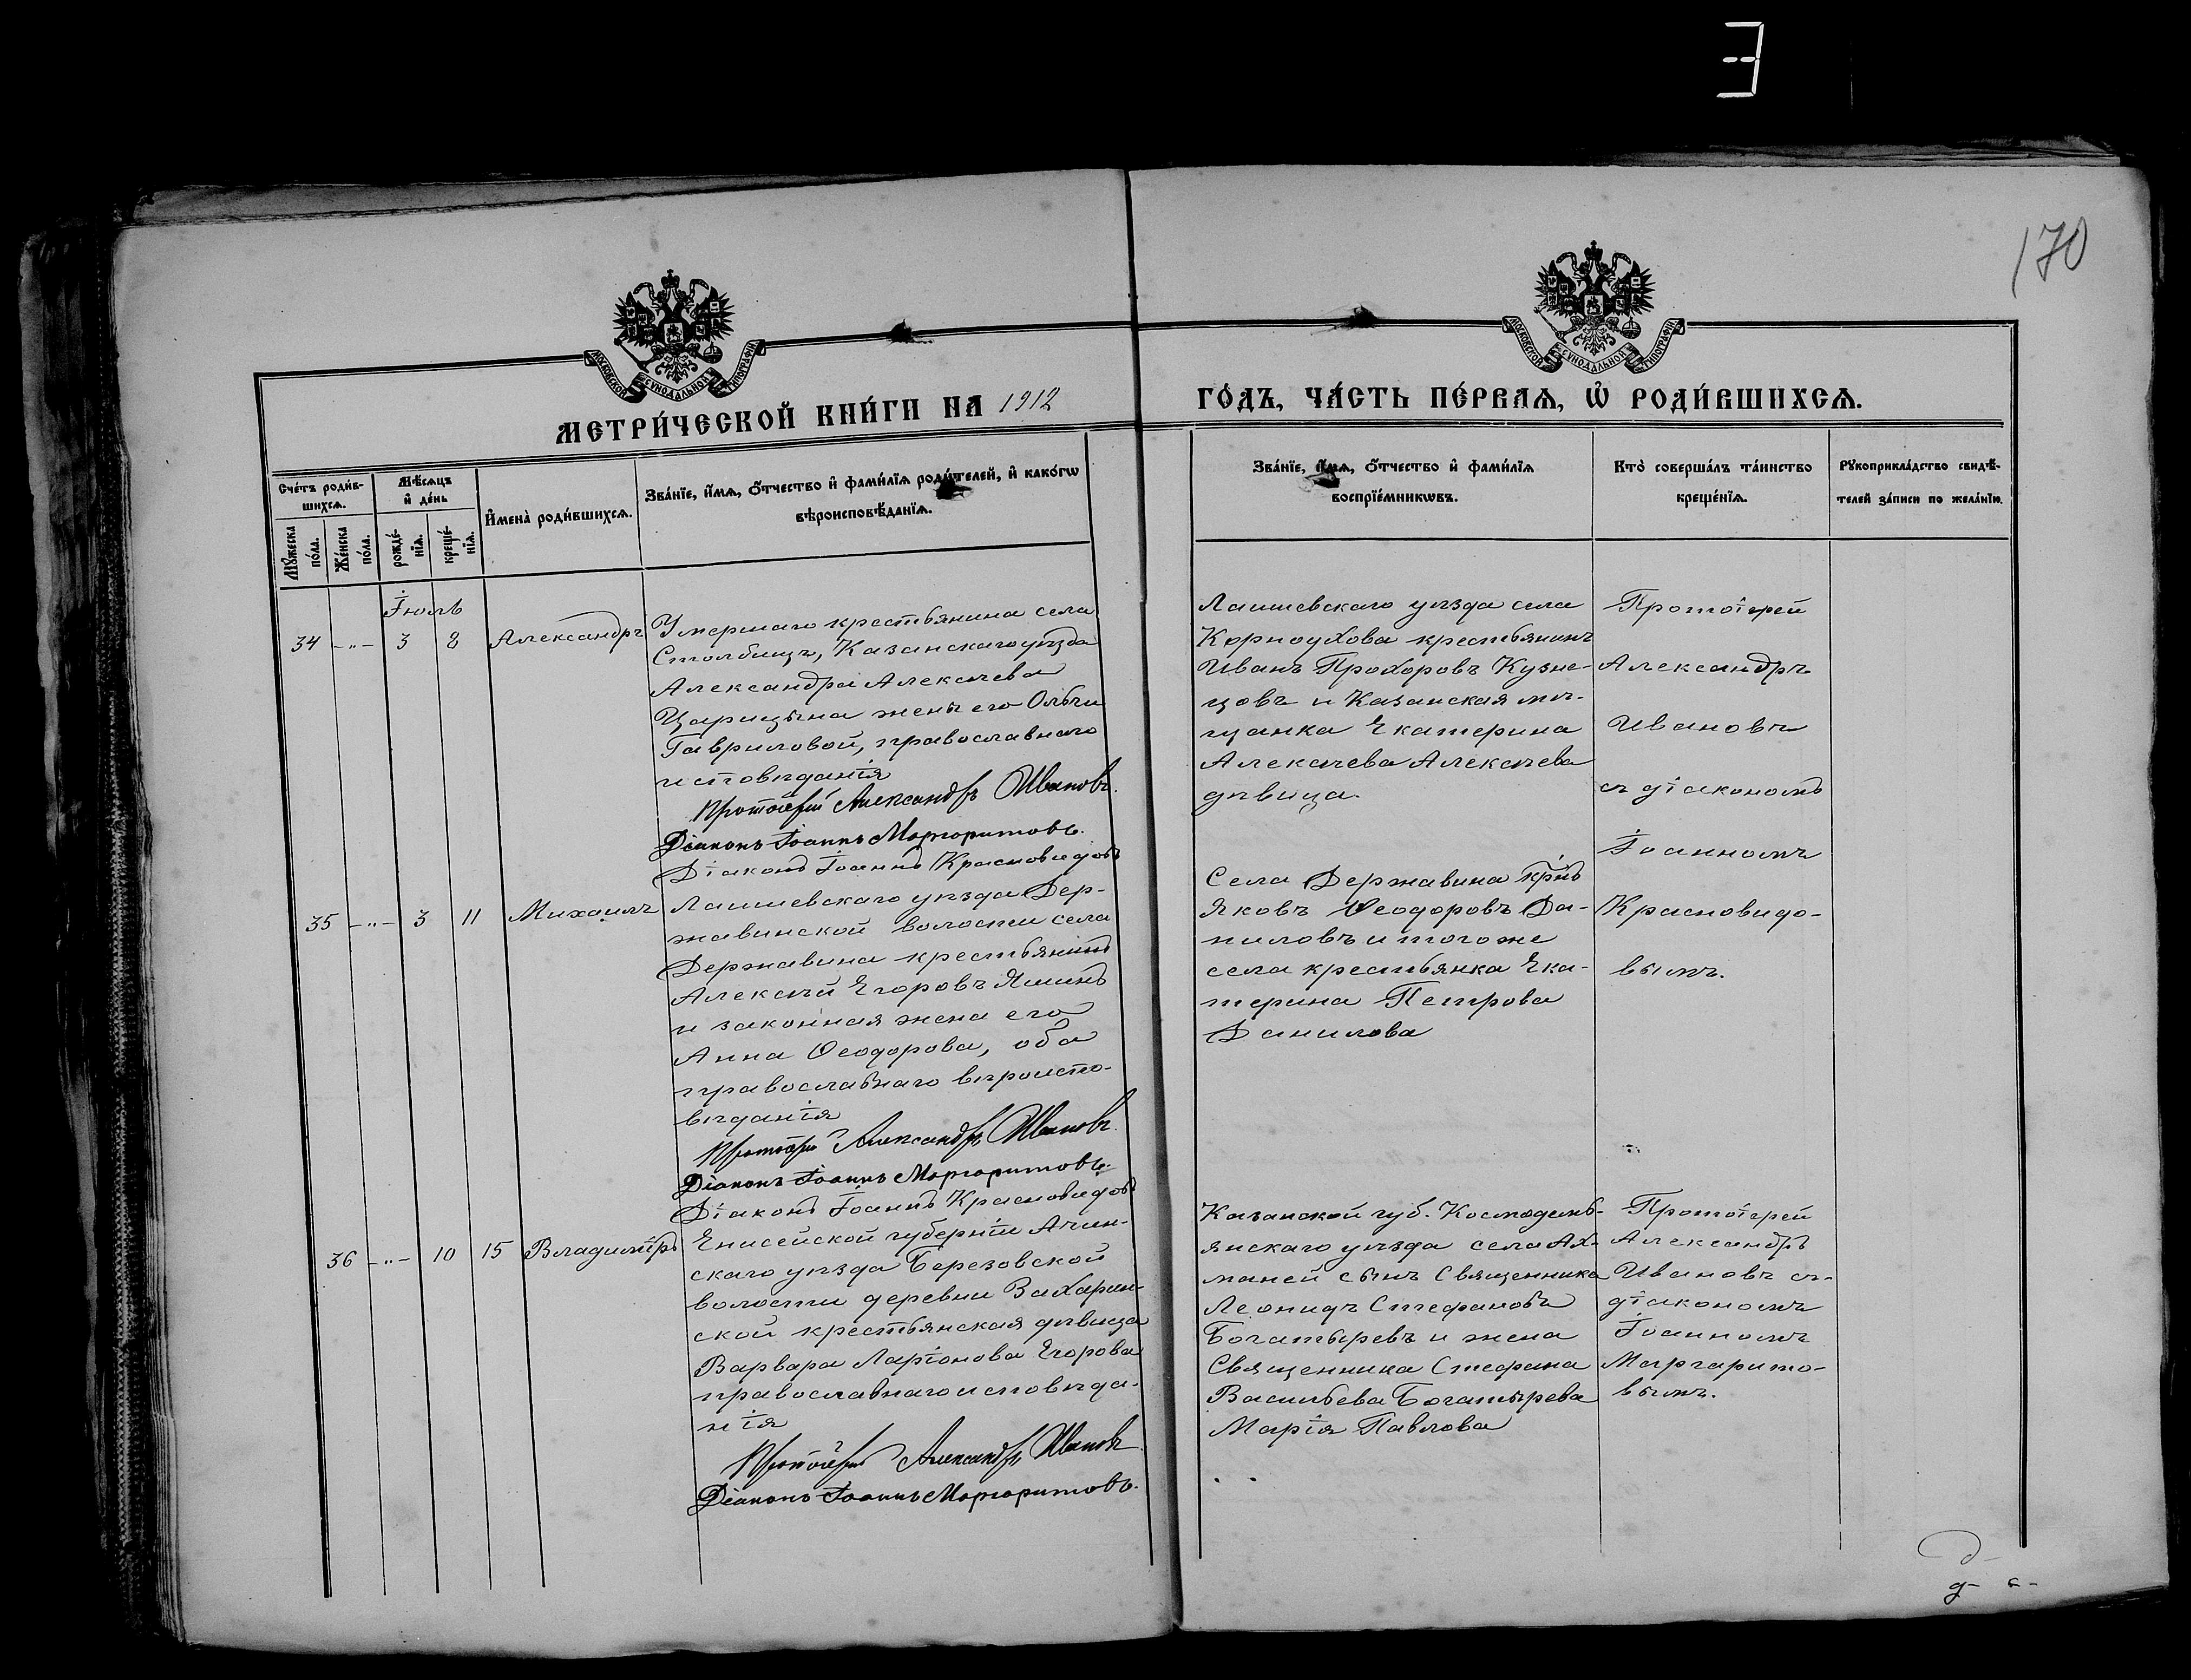 170
МОСКОВСКОЙ СѴНОДАЛЬНОЙ ТИПОГРАФІИ
МОСКОВСКОЙ СѴНОДАЛЬНОЙ ТИПОГРАФІИ
МЕТРИ́ЧЕСКОЙ КНИ́ГИ НА 1912
ГО́ДЪ, ЧА́СТЬ ПЕ́РВАѦ, Ѡ҆ РОДИ́ВШИХСѦ.
Сче́тъ роди́в-
шихсѧ.
Мѣ́сѧцъ
и҆ де́нь
Мꙋ́жеска
по́ла.
Же́нска
по́ла.
рожде́-
нїѧ.
креще́-
нїѧ.
И҆мена̀ роди́вшихсѧ.
Зва́нїе, и҆́мѧ, ѻ҆́тчество и҆ фами́лїѧ роди́телей, и҆ како́гѡ
вѣроисповѣ́данїѧ.
Зва́нїе, и҆́мѧ, ѻ҆́тчество и҆ фами́лїѧ
воспрїе́мникѡвъ.
Кто̀ соверша́лъ та́инство
креще́нїѧ.
Рꙋкоприкла́дство свидѣ́-
телей за́писи по жела́нїю.
Іюль
34 -„- 3 8 Александръ
Умершаго крестьянина села
Столбищъ, Казанскаго уѣзда
Александра Алексѣева
Царицына жены его Ольги
Гавриловой, православнаго
исповѣданія
Протоіерей Александръ Ивановъ.
Діаконъ Іоаннъ Маргаритовъ.
Діаконъ Іоаннъ Красновидовъ
Лаишевскаго уѣзда села
Корноухова крестьянинъ
Иванъ Прохоровъ Кузне-
цовъ и Казанская мѣ-
щанка Екатерина
Алексѣева Алексѣева
дѣвица.
Протоіерей
Александръ
Ивановъ
съ діакономъ
Іоанномъ
Красновидо-
вымъ.
35 -„- 3 11 Михаилъ
Лаишевскаго уѣзда Дер-
жавинской волости села
Державина крестьянинъ
Алексѣй Егоровъ Яшинъ
и законная жена его
Анна Ѳеодорова, оба
православнаго вѣроиспо-
вѣданія
Протоіерей Александръ Ивановъ.
Діаконъ Іоаннъ Маргаритовъ.
Діаконъ Іоаннъ Красновидовъ
Села Державина крнъ
Яковъ Ѳеодоровъ Да-
ниловъ и того же
села крестьянка Ека-
терина Петрова
Данилова
36 -„- 10 15 Владиміръ
Енисейской губерніи Ачин-
скаго уѣзда Березовской
волости деревни Захарин-
ской крестьянская дѣвица
Варвара Ларіонова Егорова
православнаго исповѣда-
нія
Протоіерей Александръ Ивановъ
Діаконъ Іоаннъ Маргаритовъ.
Казанской губ. Космодемь-
янскаго уѣзда села Ах-
маней сынъ Священника
Леонидъ Стефановъ
Богатыревъ и жена
Священника Стефана
Васильева Богатырева
Марія Павлова
Протоіерей
Александръ
Ивановъ съ
діакономъ
Іоанномъ
Маргарито-
вымъ.